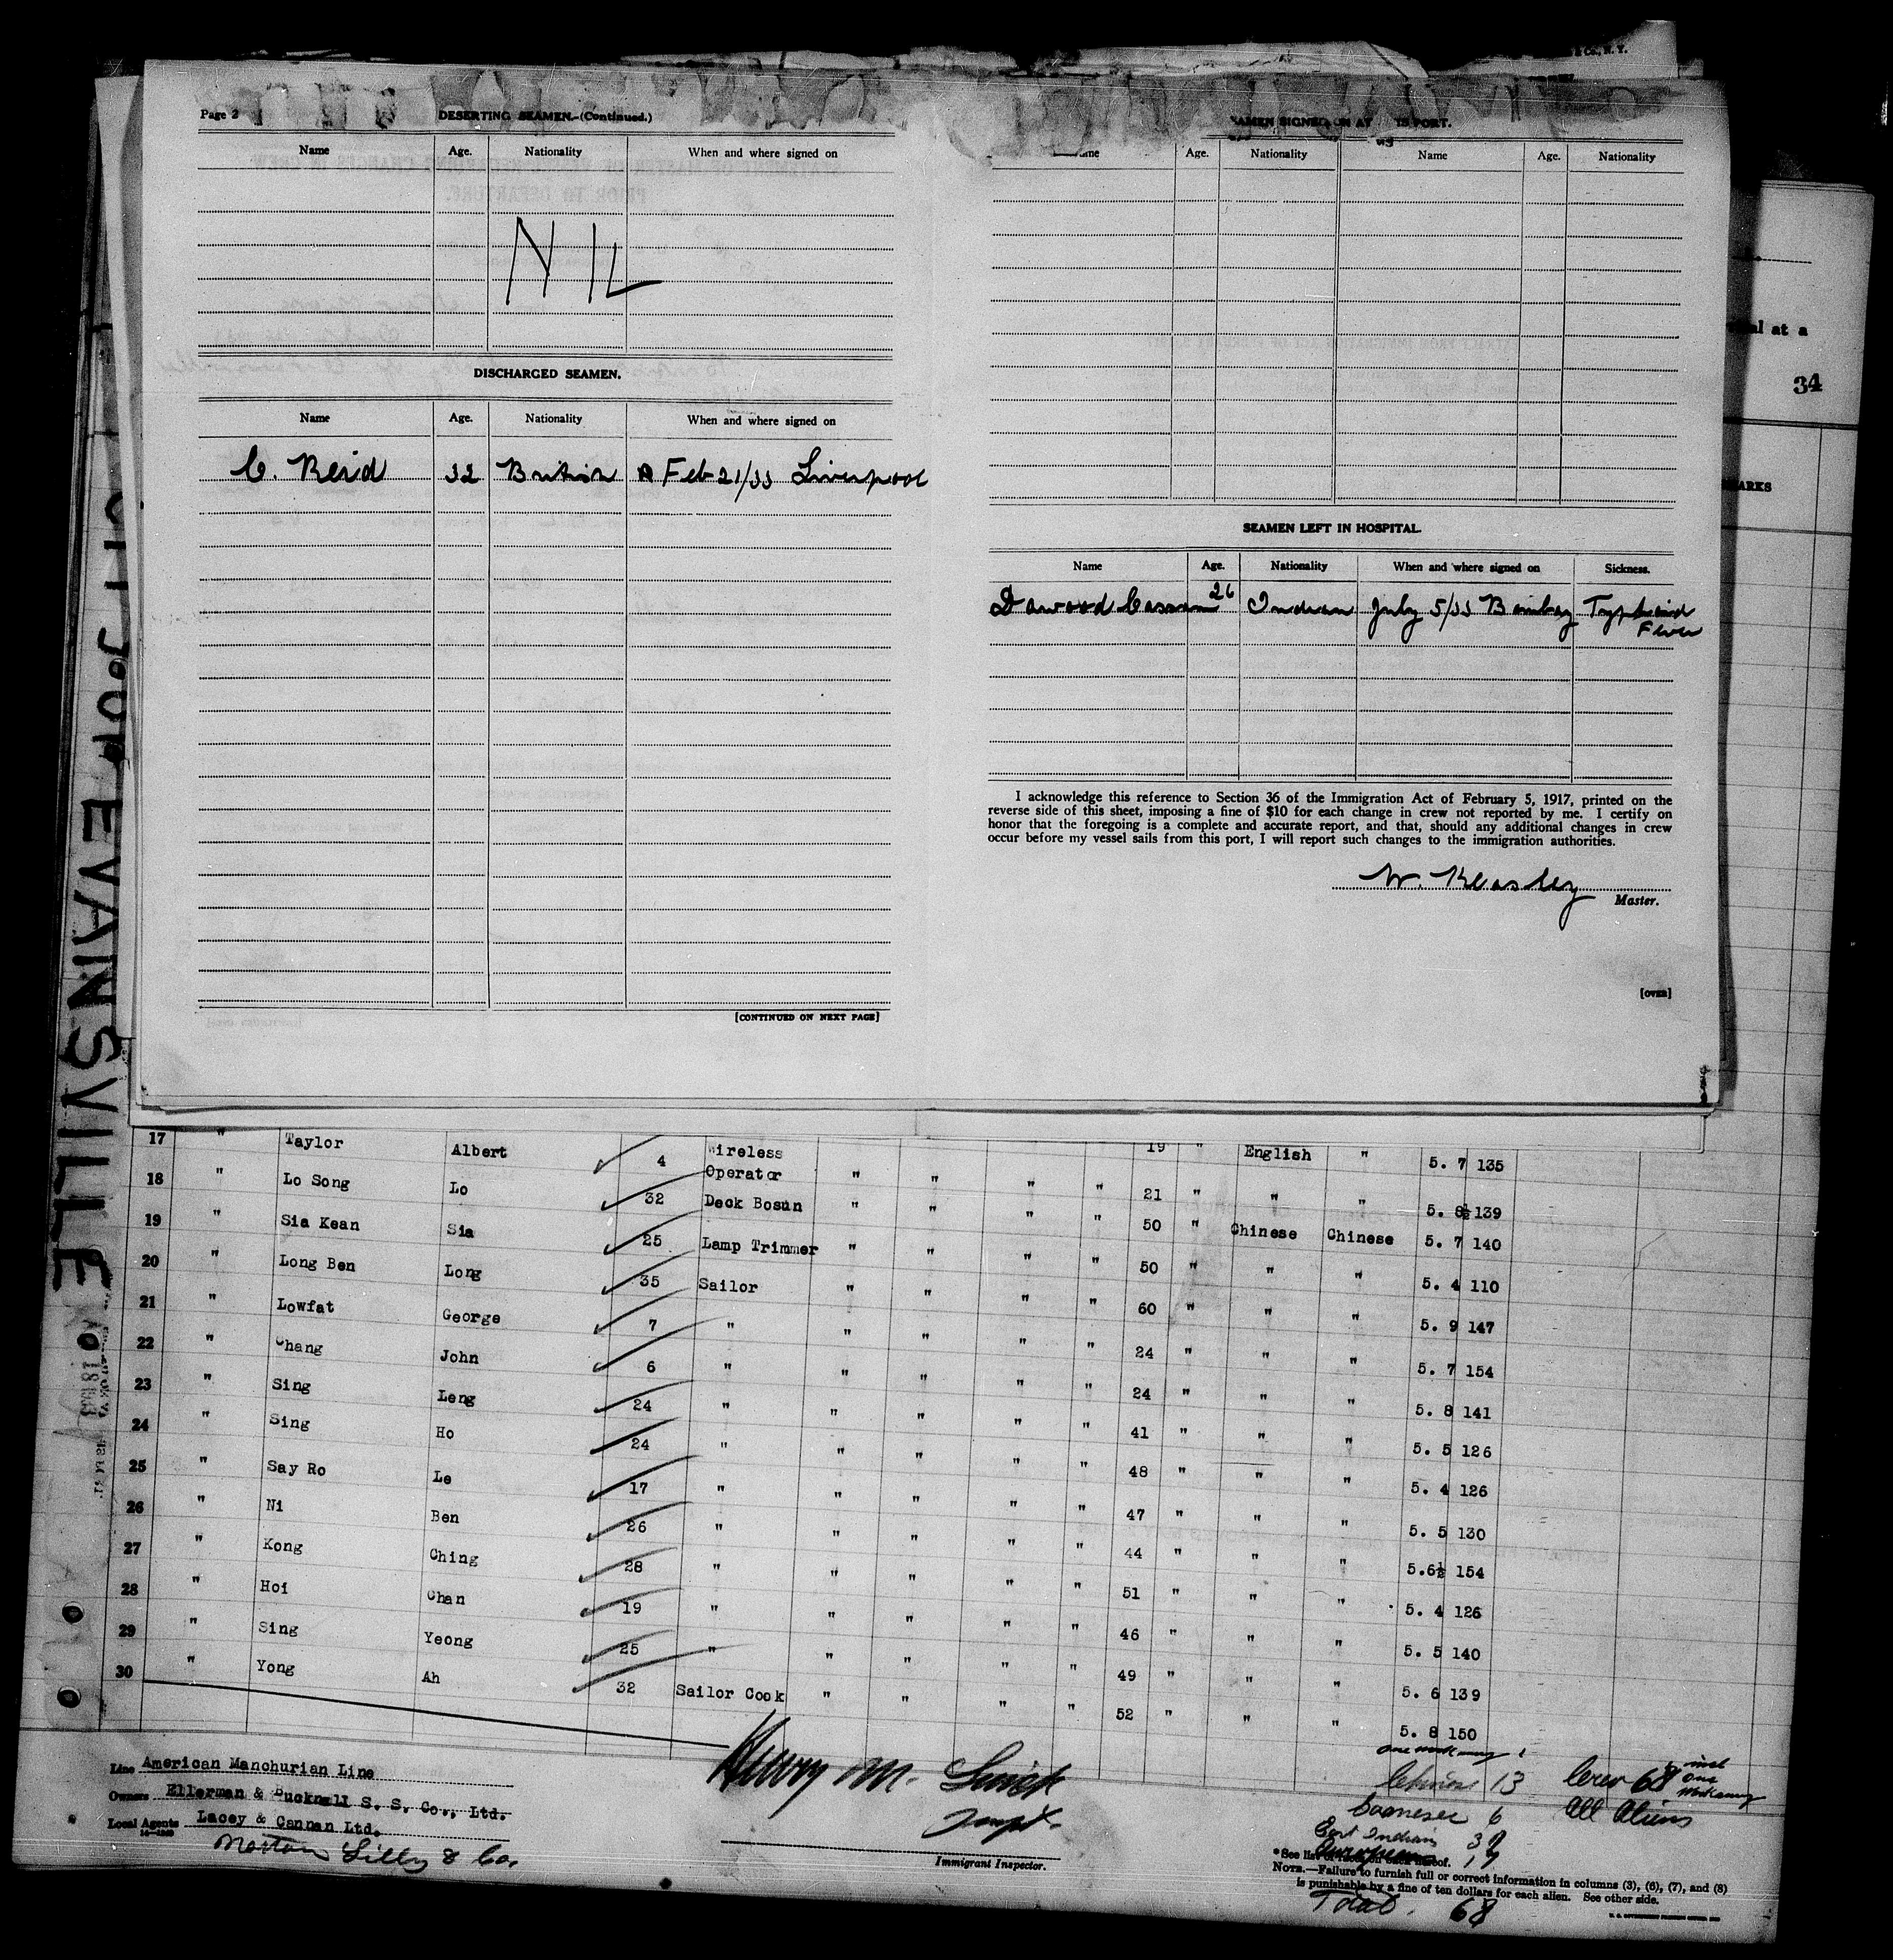 Page 2
DESERTING SEAMEN.-(Continued.)
Name Age. Nationality When and where signed on
NIL
DISCHARGED SEAMEN.
Name Age. Nationality When and where signed on
C. Reid 32 British Feb 21/33 Liverpool
[CONTINUED ON NEXT PAGE]
SEAMEN SIGNED ON AT THIS PORT.
Name Age. Nationality Name Age. Nationality
SEAMEN LEFT IN HOSPITAL.
Name Age. Nationality When and where signed on Sickness.
Dawood Cassam 26 Indian July 5/33 Bombay Typhoid
Fever
I acknowledge this reference to Section 36 of the Immigration Act of February 5, 1917, printed on the
reverse side of this sheet, imposing a fine of $10 for each change in crew not reported by me. I certify on
honor that the foregoing is a complete and accurate report, and that, should any additional changes in crew
occur before my vessel sails from this port, I will report such changes to the immigration authorities.
W. Keasley
Master.
[OVER]
al at a
34
ARKS
EVANSVILLE
17 " Taylor Albert 4 Wireless Operator " " " " 19 " English " 5. 7 135
18 " Lo Song Lo 32 Deck Bosun " " " " 21 " " " 5. 8½ 139
19 " Sia Kean Sia 25 Lamp Trimmer " " " " 50 " Chinese Chinese 5. 7 140
20 " Long Ben Long 35 Sailor " " " " 50 " " " 5. 4 110
21 " Lowfat George 7 " " " " " 60 " " " 5. 9 147
22 " Chang John 6 " " " " " 24 " " " 5. 7 154
23 " Sing Leng 24 " " " " " 24 " " " 5. 8 141
24 " Sing Ho 24 " " " " " 41 " " " 5. 5 126
25 " Say Ro Le 17 " " " " " 48 " " " 5. 4 126
26 " Ni Ben 26 " " " " " 47 " " " 5. 5 130
27 " Kong Ching 28 " " " " " 44 " " " 5.6½ 154
28 " Hoi Chan 19 " " " " " 51 " " " 5. 4 126
29 " Sing Yeong 25 " " " " " 46 " " " 5. 5 140
30 " Yong Ah 32 Sailor Cook " " " " 49 " " " 5. 6 139
52 " " " 5. 8 150
Line American Manchurian Line
Owners Ellerman & Bucknall S. S. Co., Ltd.
Local Agents Lacey & Cannan Ltd.
Norton Lilly & Co.
Immigrant Inspector.
Chinese 13
Goanese 6
East Indian
Total. 68
Crew 68 incl
One
workaway
All Aliens
*See list of races on back hereof.
NOTE.—Failure to furnish full or correct information in columns (3), (6), (7), and (8)
is punishable by a fine of ten dollars for each alien. See other side.